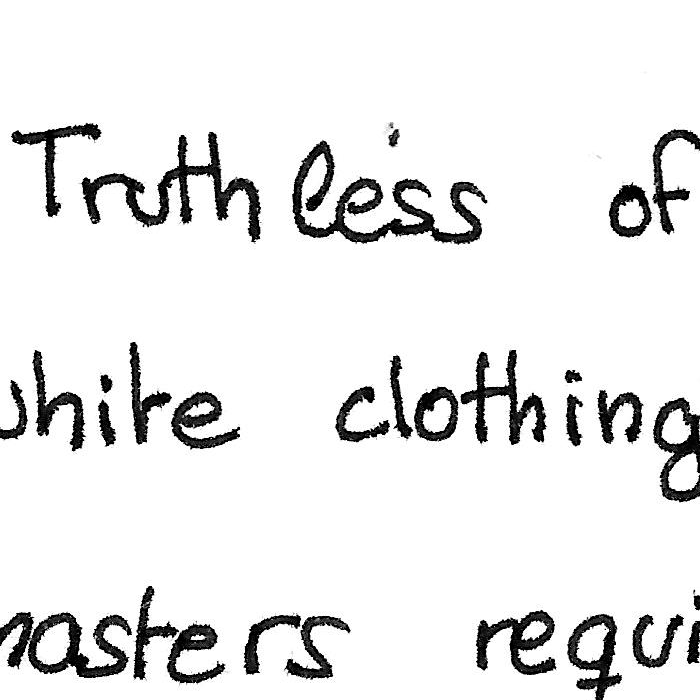 Truthless of
white clothing
masters requi